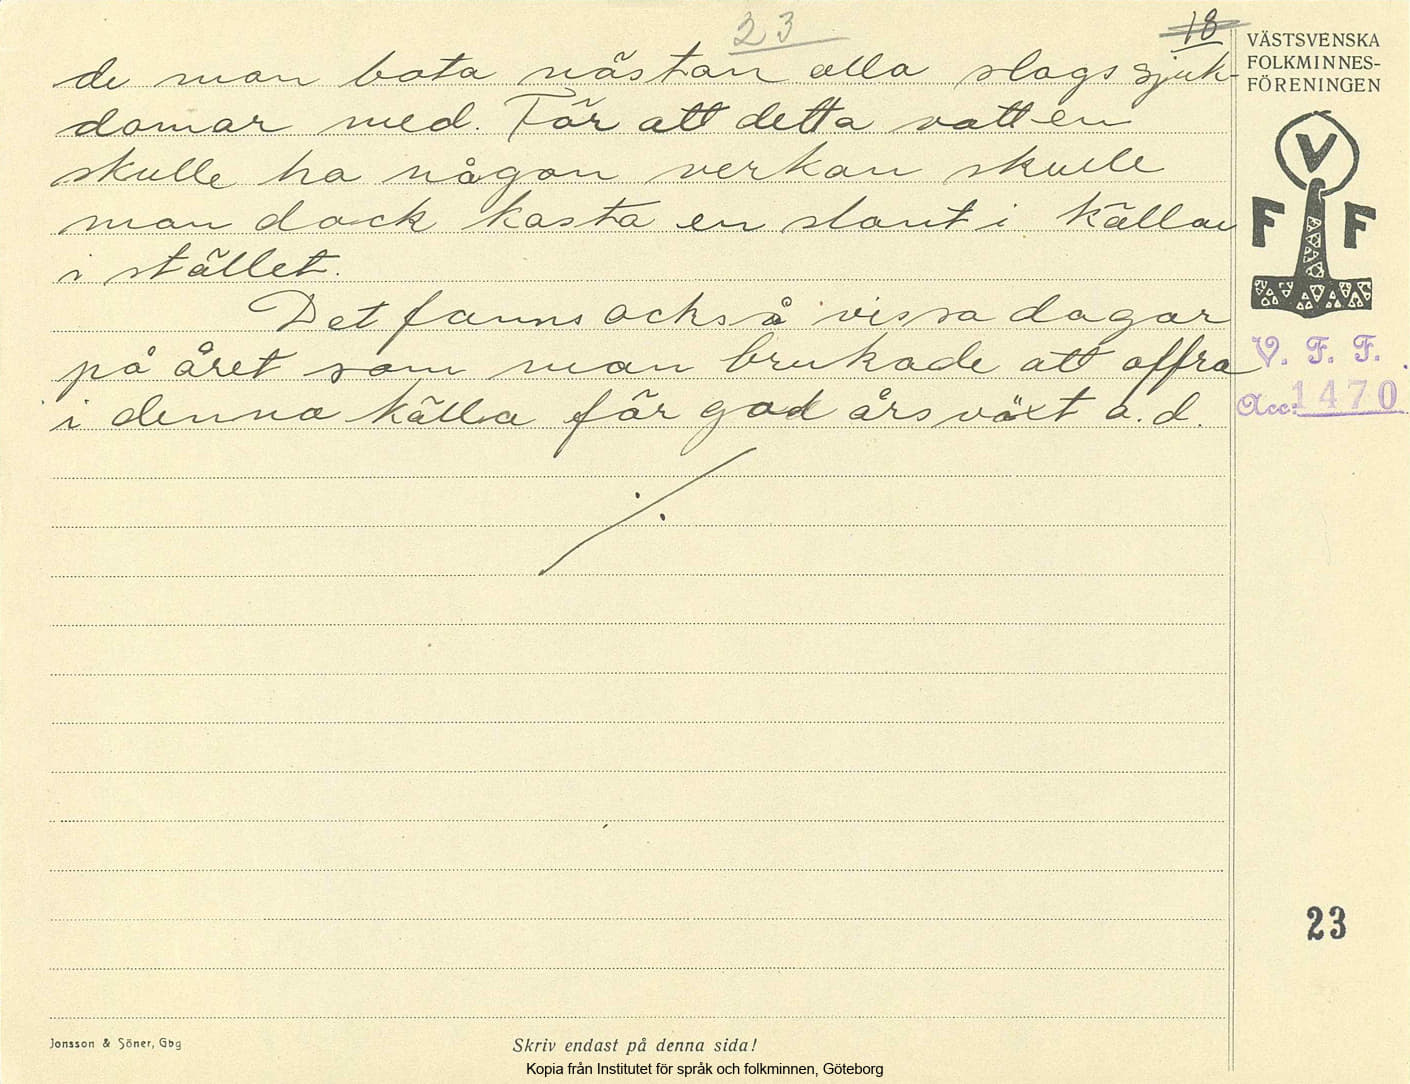 23
18
de man bota nästan alla slags sjuk-
domar med. För att detta vatten
skulle ha någon verkan skulle
man dock kasta en slant i källan
i stället.
Det fanns också vissa dagar
på året som man brukade att offra
i denna källa för god årsväxt o.d.
VÄSTSVENSKA
FOLKMINNES-
FÖRENINGEN
V
F F
V. F. F.
Acc. 1470
23
Jonsson & Söner, Gbg
Skriv endast på denna sida!
Kopia från Institutet för språk och folkminnen, Göteborg